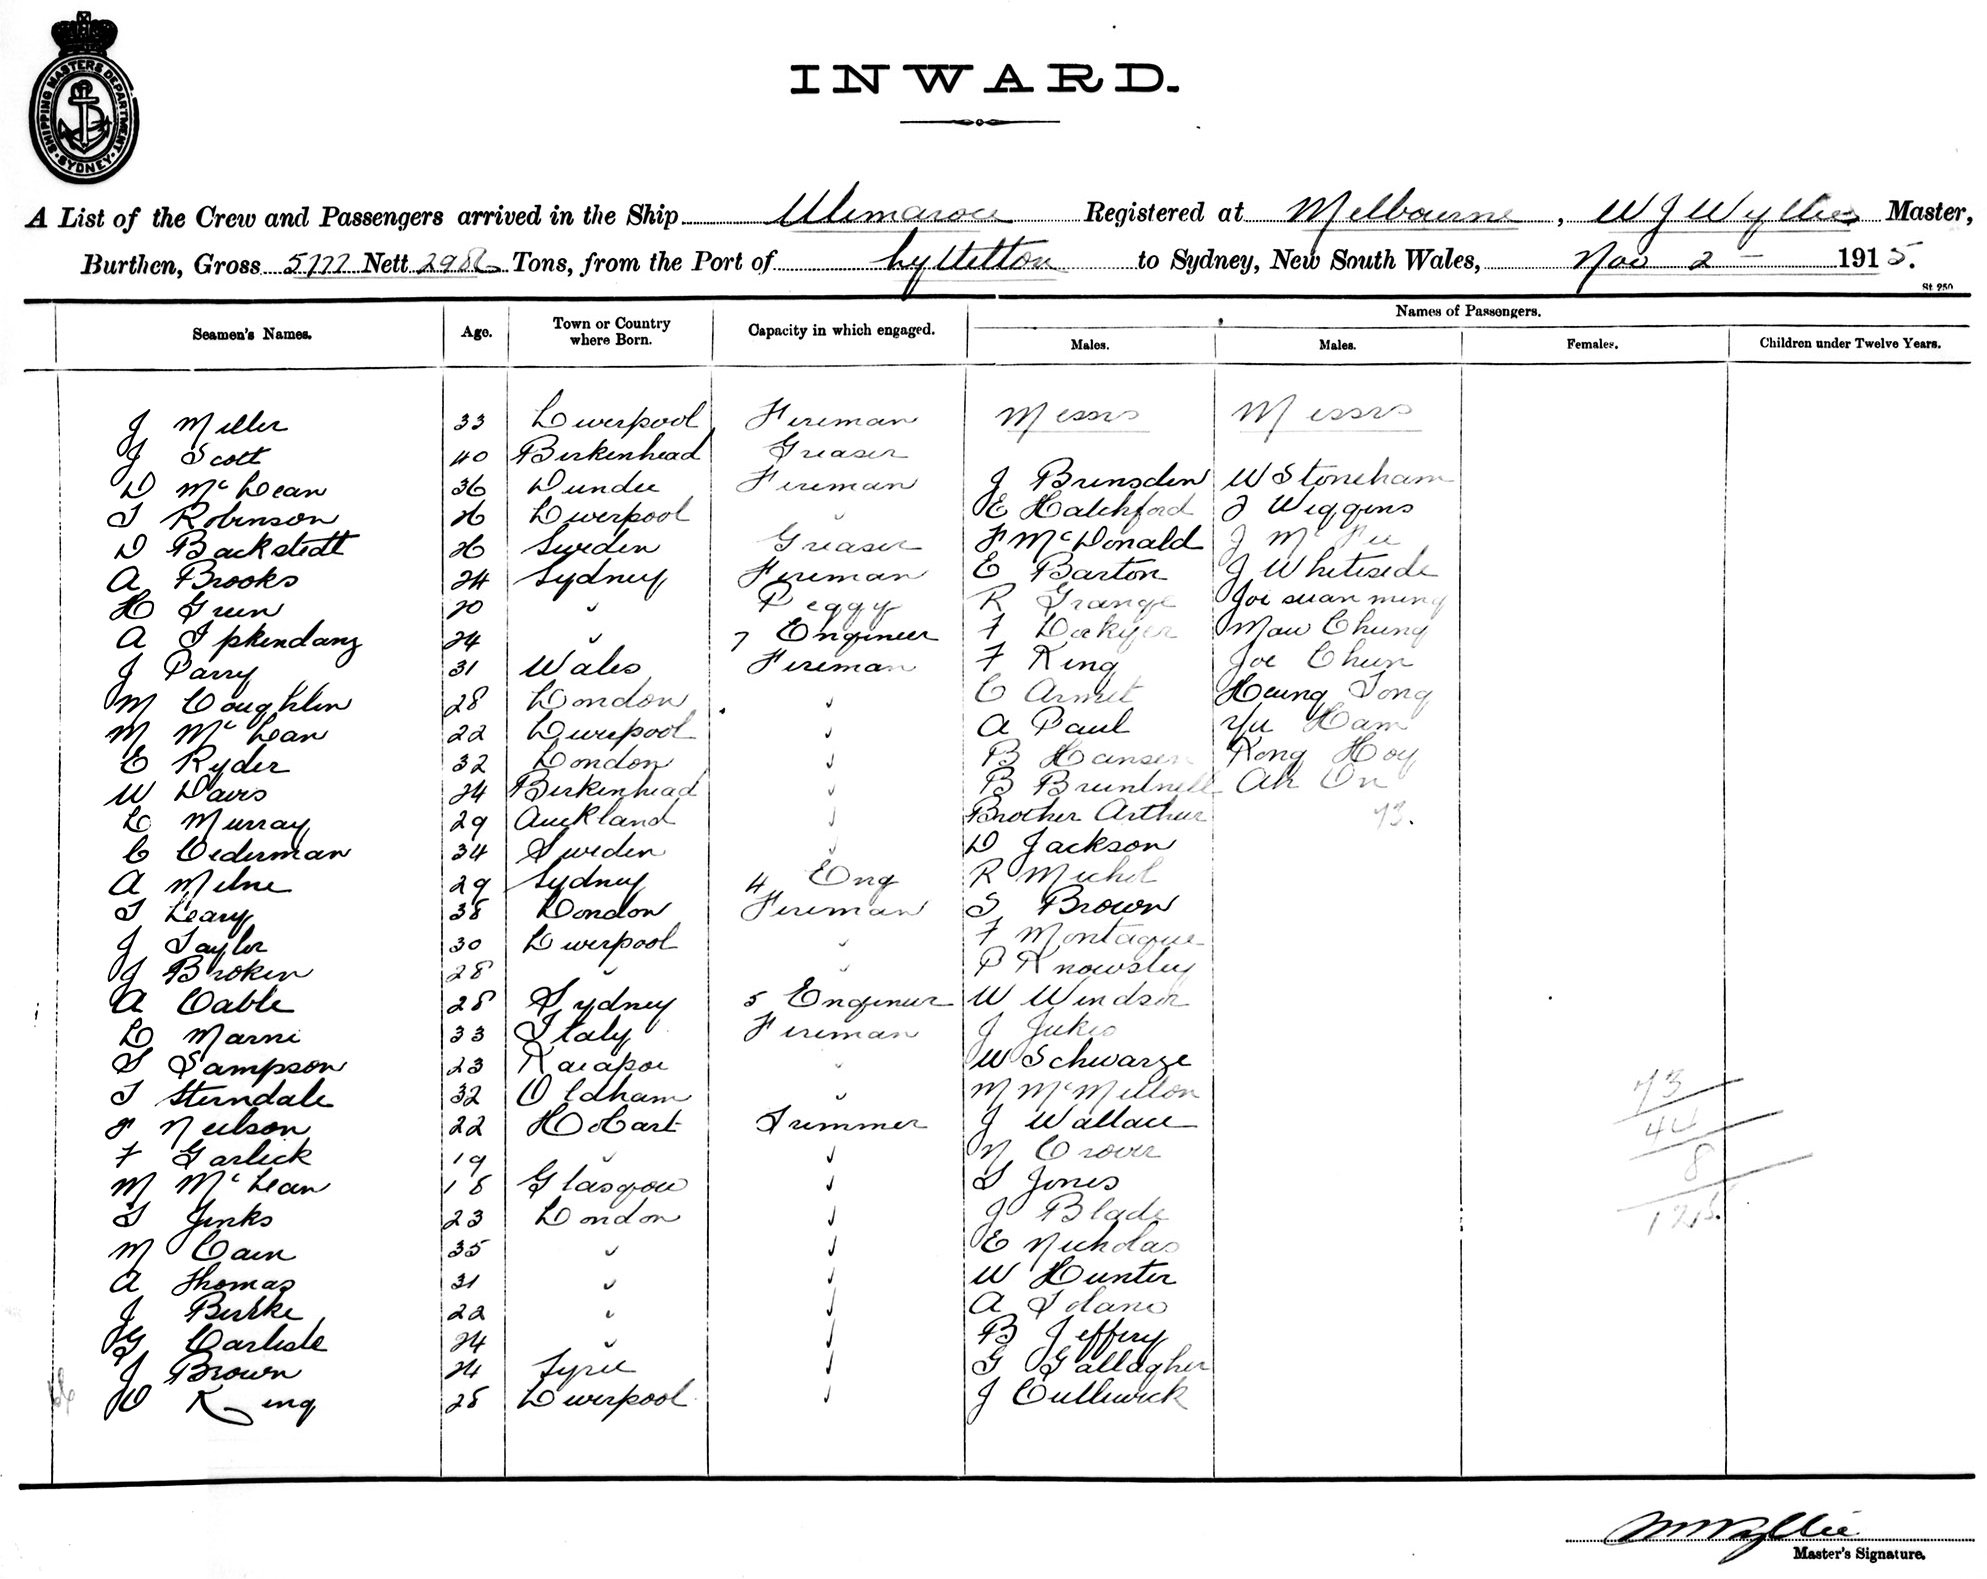 SHIPPING MASTERS DEPARTMENT
SYDNEY
INWARD.
A List of the Crew and Passengers arrived in the Ship Ulimaroa Registered at Melbourne, W J Wyllie Master,
Burthen, Gross 5777 Nett 2986 Tons, from the Port of Lyttelton to Sydney, New South Wales, Nov 2 – 1915.
St 250
Names of Passengers.
Seamen's Names. Age. Town or Country where Born. Capacity in which engaged. Males. Males. Females. Children under Twelve Years.
J Miller 33 Liverpool Fireman Messrs Messrs
J Scott 40 Birkenhead Greaser
D McLean 36 Dundee Fireman J Brinsden W Stoneham
T Robinson 26 Liverpool " E Hatchford J Wiggins
D Backstedt 26 Sweden Greaser F McDonald J
A Brooks 24 Sydney Fireman E Barton J Whiteside
H Green 20 " Peggy R Grange Joe suan ming
A 24 " 7 Engineer F Maw Chung
J Parry 31 Wales Fireman F King Joe Chun
M Coughlin 28 London " C Armit Heung Tong
M McLean 22 Liverpool " A Paul Yu Ham
E Ryder 32 London " B Hansen Kong Hoy
W Davis 24 Birkenhead " B Bruntnell Ah On
L Murray 29 Auckland " Brother Arthur 43.
C Cederman 34 Sweden " D Jackson
A Milne 29 Sydney 4 Eng R Michel
T Leary 38 London Fireman S Brown
J Taylor 30 Liverpool " F Montague
J Broken 28 " " P Knowsley
A Cable 28 Sydney 5 Engineer W Windsor
L Marni 33 Italy Fireman J Jukes
S Sampson 23 Kaiapoi " W Schwarze
T Sterndale 32 Oldham " M McMillon
F Neilson 22 Hobart Trimmer J Wallace
F Garlick 19 " " N Crover
M McLean 18 Glasgow " S Jones
S Jinks 23 London " J Blade
M Cain 35 " " E Nicholas
A Thomas 31 " " W Hunter
J Burke 22 " " A Tolano
G Carlisle 24 " " B Jeffery
J Brown 24 " G Gallagher
D King 28 Liverpool " J Cullwick
44
8
Master's Signature.